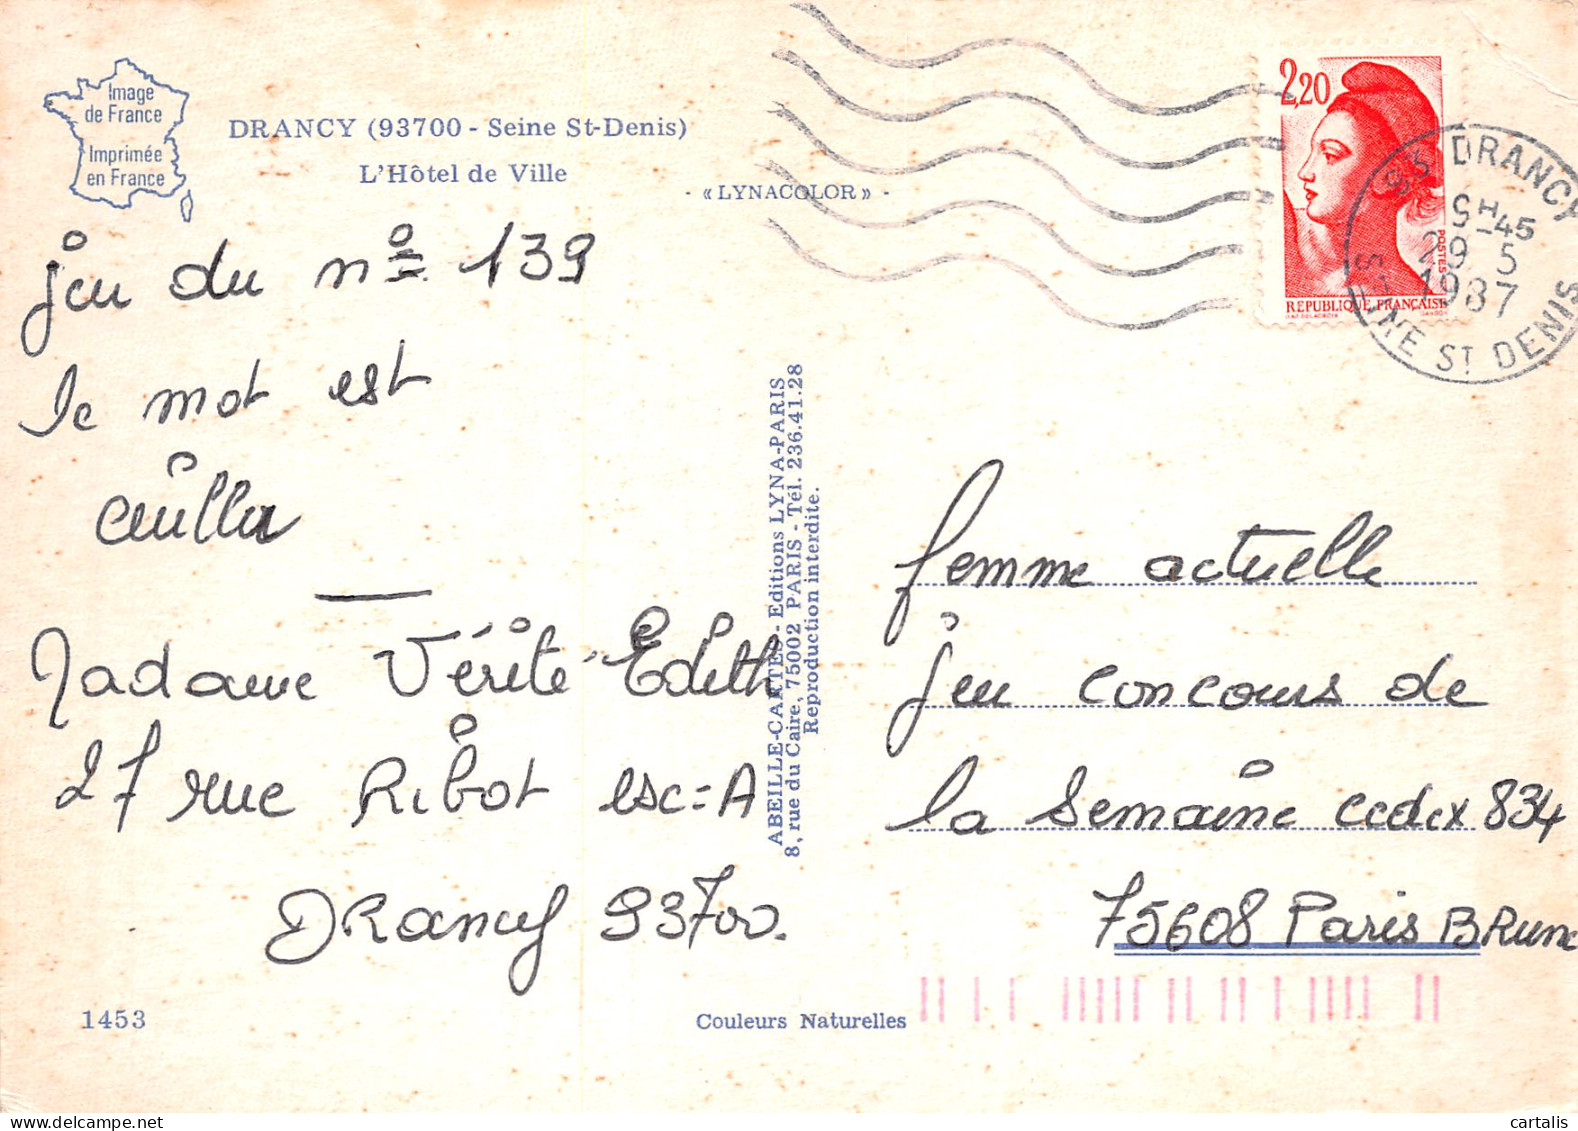 Image
de France
Imprimée
en France
DRANCY (93700 - Seine St-Denis)
L'Hôtel de Ville
- « LYNACOLOR » -
2,20
POSTES
RÉPUBLIQUE FRANÇAISE
93 DRANCY
9H45
29-5
1987
SEINE ST DENIS
jeu du nº 139
le mot est
Madame Vérité Edith
27 rue Ribot esc=A
DRancy 93700.
ABEILLE-CARTES - Editions LYNA-PARIS
8, rue du Caire, 75002 PARIS - Tél. 236.41.28
Reproduction interdite.
femme actuelle
jeu concours de
la semaine cedex 834
75608 Paris BRune
1453
Couleurs Naturelles
cartalis